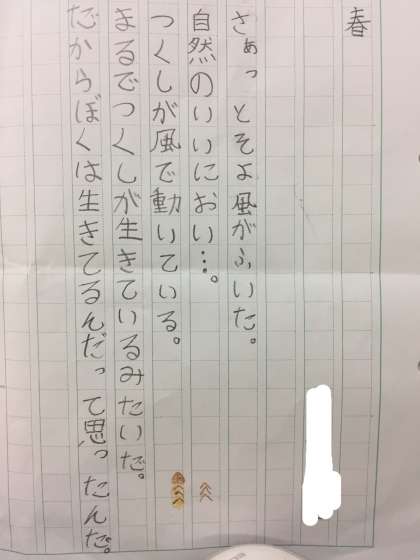 春
さぁっとそよ風がふいた。
自然のいいにおい…。
つくしが風で動いている。
まるでつくしが生きているみたいだ。
だからぼくは生きてるんだって思ったんだ。